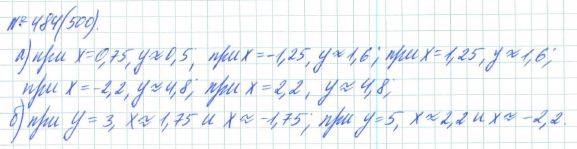 № 484 (500).
а) при x=0,75, y≈0,5; при x=-1,25, y≈1,6; при x=1,25, y≈1,6;
при x=-2,2, y≈4,8; при x=2,2, y≈4,8;
б) при y=3, x≈1,75 и x≈-1,75; при y=5, x≈2,2 и x≈-2,2.